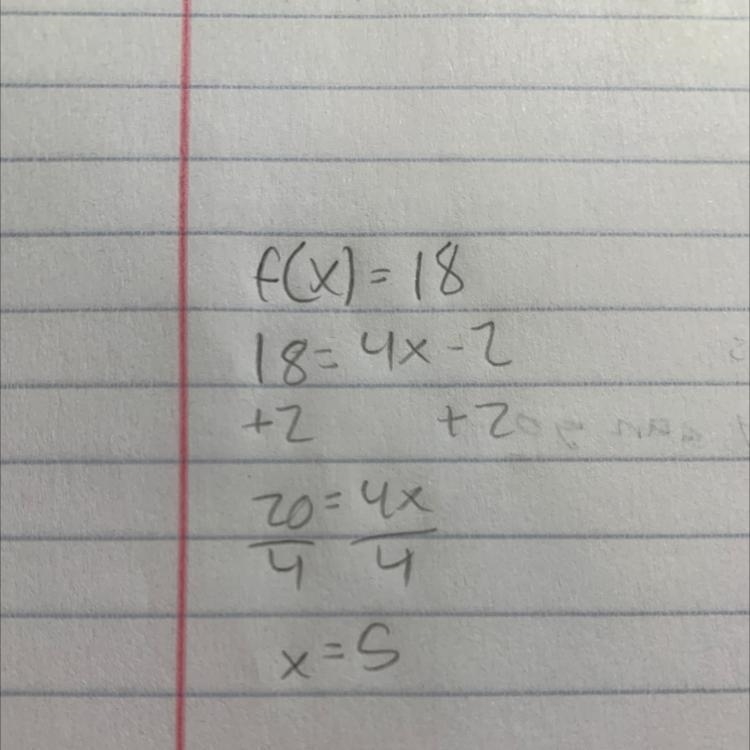 f(x) = 18
18 = 4x - 2
+2 +2
20 = 4x
4 4
x = 5